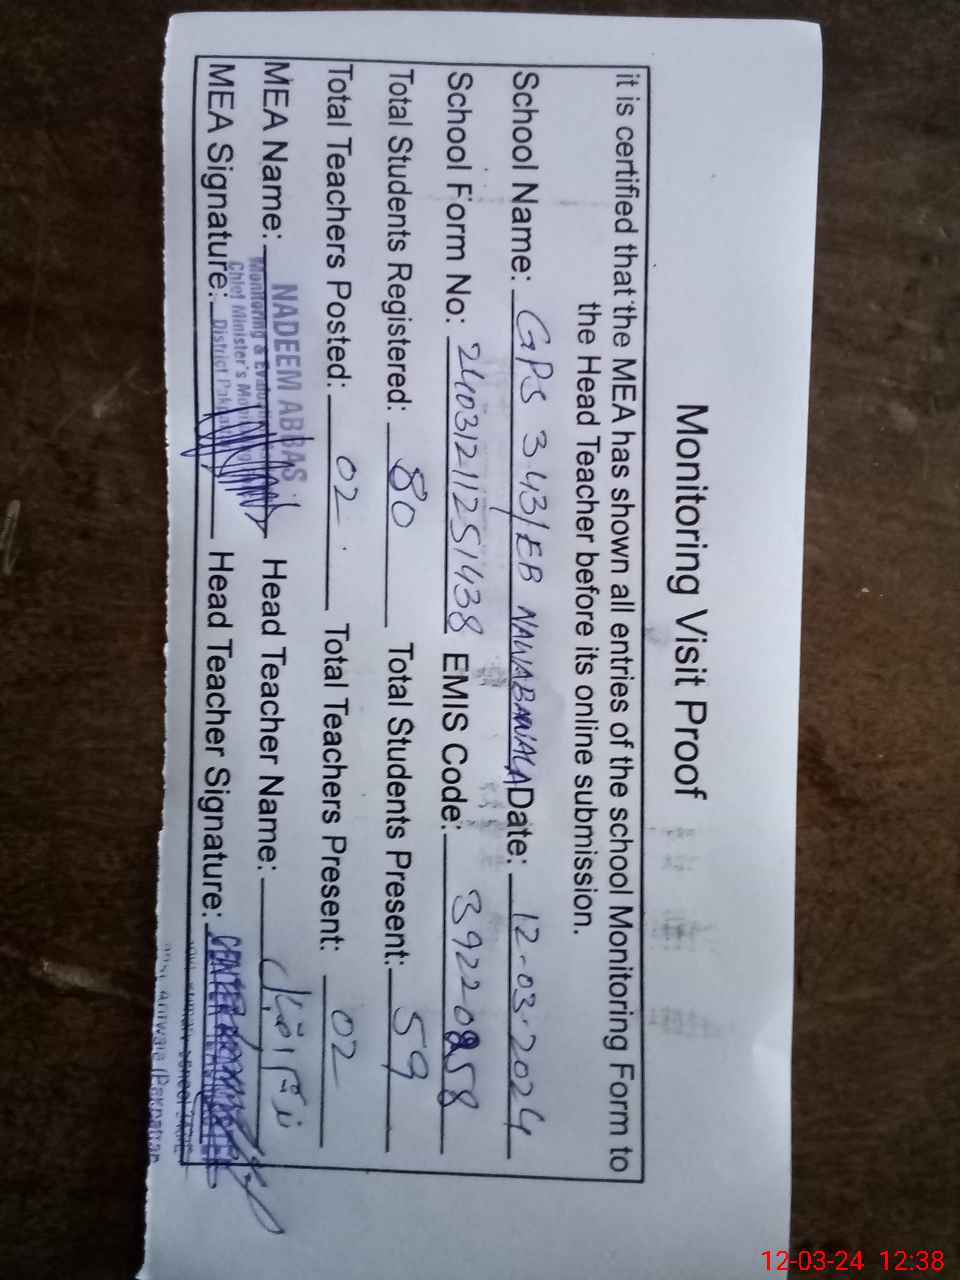 Monitoring Visit Proof
it is certified that the MEA has shown all entries of the school Monitoring Form to
the Head Teacher before its online submission.
School Name: GPS 343/EB NAWABAWALA Date: 12-03-2024
School Form No: 24031211251438 EMIS Code: 39220258
Total Students Registered: 80 Total Students Present: 59
Total Teachers Posted: 02 Total Teachers Present: 02
MEA Name: NADEEM ABBAS Head Teacher Name:
Monitoring & Evaluation
MEA Signature: Chief Minister's Head Teacher Signature: CENTER
District
12-03-24 12:38